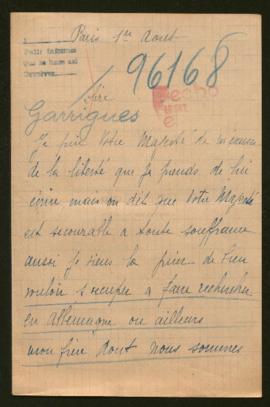 Paris 1er Aout
Pedir informes
96168
Sire
Garrigues
Je prie Votre Majesté de m'excuser
de la liberté que je prends de lui
écrire mais on dit que Votre Majesté
est secourable a toute souffrance
aussi je viens la prier de bien
vouloir s'occuper a faire rechercher
en Allemagne ou ailleurs
mon frère dont nous sommes